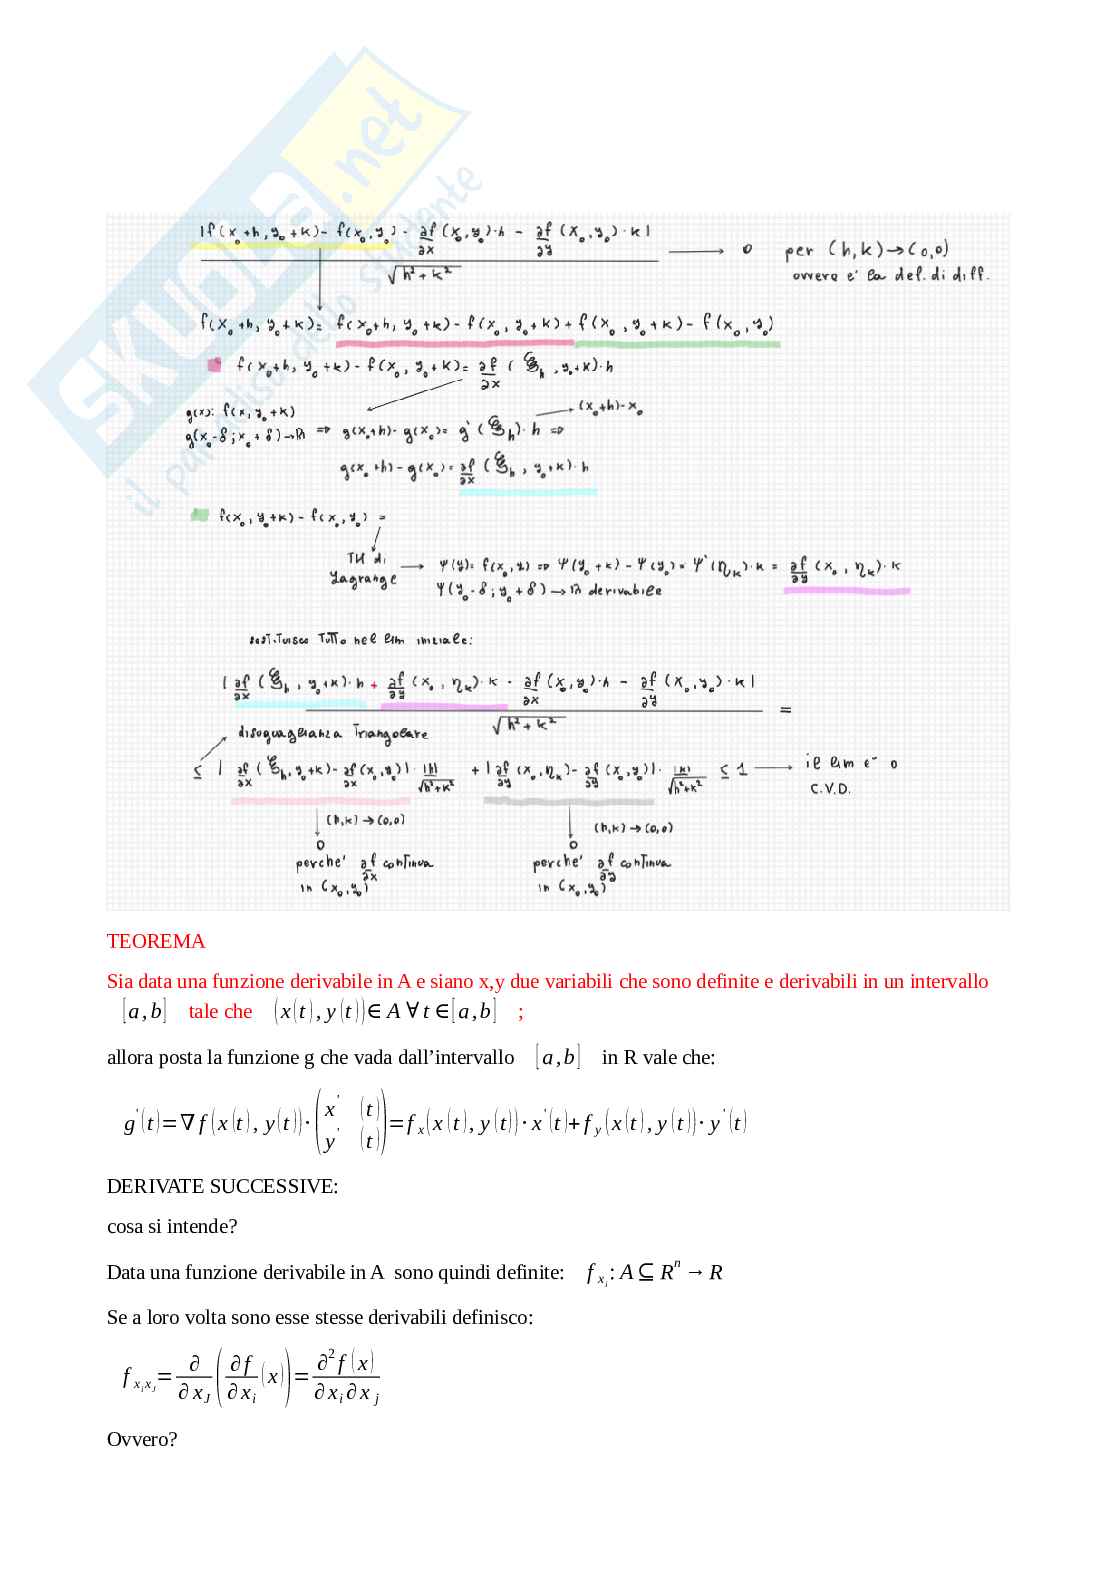 SKUOLA.net
il paradiso dello studente
|f(x₀+h, y₀+k) - f(x₀, y₀) - ∂f/∂x (x₀, y₀)·h - ∂f/∂y (x₀, y₀)·k| / √(h²+k²) → 0 per (h,k)→(0,0)
ovvero e' la def. di diff.
f(x₀+h, y₀+k) = f(x₀+h, y₀+k) - f(x₀, y₀+k) + f(x₀, y₀+k) - f(x₀, y₀)
f(x₀+h, y₀+k) - f(x₀, y₀+k) = ∂f/∂x (ξₕ, y₀+k)·h
g(x): f(x, y₀+k)
(x₀+h)-x₀
g(x₀-δ; x₀+δ)→ℝ ⇒ g(x₀+h) - g(x₀) = g'(ξₕ)·h ⇒
g(x₀+h) - g(x₀) = ∂f/∂x (ξₕ, y₀+k)·h
f(x₀, y₀+k) - f(x₀, y₀) =
TH di
Lagrange → ψ(y) = f(x₀, y) ⇒ ψ(y₀+k) - ψ(y₀) = ψ'(ηₖ)·k = ∂f/∂y (x₀, ηₖ)·k
ψ(y₀-δ; y₀+δ) → ℝ derivabile
sostituisco tutto nel lim iniziale:
|∂f/∂x (ξₕ, y₀+k)·h + ∂f/∂y (x₀, ηₖ)·k - ∂f/∂x (x₀, y₀)·h - ∂f/∂y (x₀, y₀)·k| / √(h²+k²) =
disuguaglianza triangolare
≤ |∂f/∂x (ξₕ, y₀+k) - ∂f/∂x (x₀, y₀)|· |h|/√(h²+k²) + |∂f/∂y (x₀, ηₖ) - ∂f/∂y (x₀, y₀)|· |k|/√(h²+k²) ≤ 1 → il lim e' 0
C.V.D.
(h,k)→(0,0) (h,k)→(0,0)
0 0
perche' ∂f/∂x continua perche' ∂f/∂y continua
in (x₀, y₀) in (x₀, y₀)
TEOREMA
Sia data una funzione derivabile in A e siano x,y due variabili che sono definite e derivabili in un intervallo
[a,b] tale che (x(t), y(t))∈ A ∀ t ∈[a,b] ;
allora posta la funzione g che vada dall’intervallo [a,b] in R vale che:
g'(t)=∇ f(x(t), y(t))·(x' (t) y' (t))=fₓ(x(t), y(t))·x'(t)+f_y(x(t), y(t))·y'(t)
DERIVATE SUCCESSIVE:
cosa si intende?
Data una funzione derivabile in A sono quindi definite: f_{x_i}: A⊆Rⁿ→R
Se a loro volta sono esse stesse derivabili definisco:
f_{x_i x_J}=∂/∂x_J (∂f/∂x_i (x))=∂² f(x)/∂x_i ∂x_j
Ovvero?